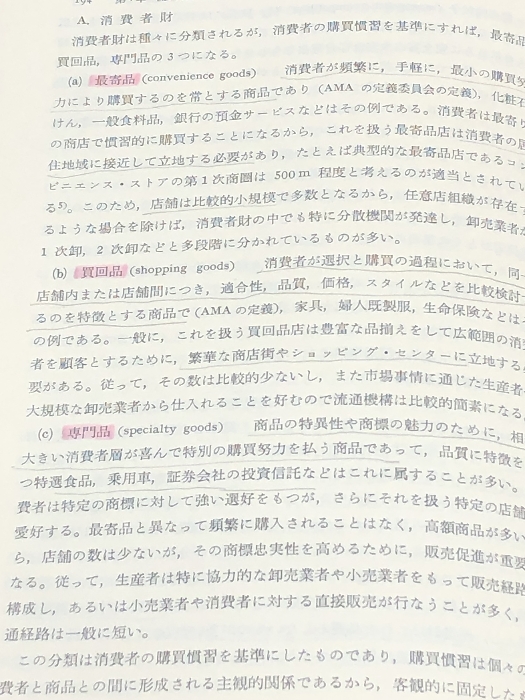 A. 消費者財
消費者財は種々に分類されるが, 消費者の購買慣習を基準にすれば, 最寄品
買回品, 専門品の3つになる。
(a) 最寄品 (convenience goods) 消費者が頻繁に, 手軽に, 最小の購買努
力により購買するのを常とする商品であり (AMA の定義委員会の定義), 化粧石
けん, 一般食料品, 銀行の預金サービスなどはその例である。消費者は最寄り
の商店で慣習的に購買することになるから, これを扱う最寄品店は消費者の居
住地域に接近して立地する必要があり, たとえば典型的な最寄品店であるコン
ビニエンス・ストアの第1次商圏は 500 m 程度と考えるのが適当とされてい
る5)。このため, 店舗は比較的小規模で多数となるから, 任意店組織が存在す
るような場合を除けば, 消費者財の中でも特に分散機関が発達し, 卸売業者が
1次卸, 2次卸などと多段階に分かれているものが多い。
(b) 買回品 (shopping goods) 消費者が選択と購買の過程において, 同一
店舗内または店舗間につき, 適合性, 品質, 価格, スタイルなどを比較検討す
るのを特徴とする商品で (AMA の定義), 家具, 婦人既製服, 生命保険などはそ
の例である。一般に, これを扱う買回品店は豊富な品揃えをして広範囲の消費
者を顧客とするために, 繁華な商店街やショッピング・センターに立地する必
要がある。従って, その数は比較的少ないし, また市場事情に通じた生産者や
大規模な卸売業者から仕入れることを好むので流通機構は比較的簡素になる。
(c) 専門品 (specialty goods) 商品の特異性や商標の魅力のために, 相
大きい消費者層が喜んで特別の購買努力を払う商品であって, 品質に特徴を
つ特選食品, 乗用車, 証券会社の投資信託などはこれに属することが多い。
費者は特定の商標に対して強い選好をもつが, さらにそれを扱う特定の店舗
愛好する。最寄品と異なって頻繁に購入されることはなく, 高額商品が多い
ら, 店舗の数は少ないが, その商標忠実性を高めるために, 販売促進が重要
なる。従って, 生産者は特に協力的な卸売業者や小売業者をもって販売経路
構成し, あるいは小売業者や消費者に対する直接販売が行なうことが多く,
通経路は一般に短い。
この分類は消費者の購買慣習を基準にしたものであり, 購買慣習は個々の
費者と商品との間に形成される主観的関係であるから, 客観的に固定した